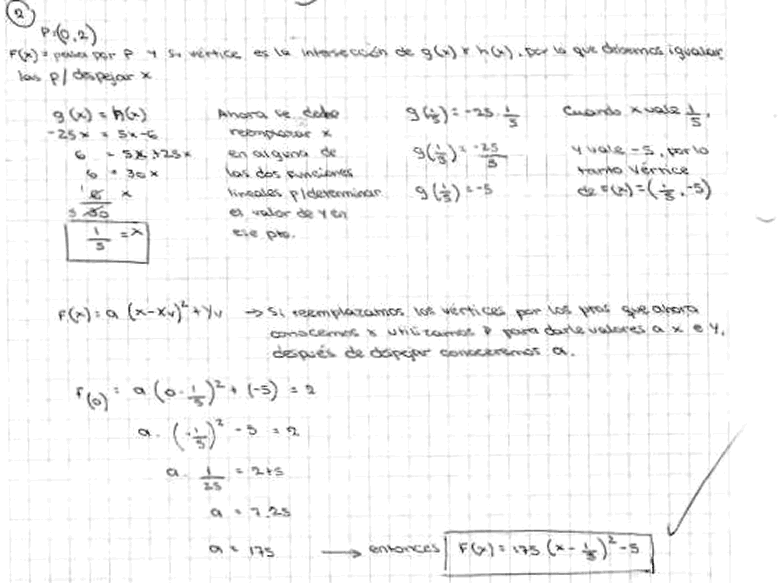 2
P:(0,2)
F(x) = pasa por P y su vértice es la intersección de g(x) y h(x), por lo que debemos igualar
las p/despejar x
g(x) = h(x)
-25x = 5x-6
6 = 5x+25x
6 = 30x
1 6 x
5 30
1/5 = x
Ahora se debe
reemplazar x
en alguna de
las dos funciones
lineales p/determinar
el valor de y en
ese pto.
g(1/5) = -25 · 1/5
g(1/5) = -25/5
g(1/5) = -5
Cuando x vale 1/5,
y vale -5, por lo
tanto vértice
de F(x) = (1/5, -5)
F(x) = a (x-xv)² + yv → Si reemplazamos los vértices por los ptos que ahora
conocemos y utilizamos P para darle valores a x e y,
después de despejar conoceremos a.
F(0) = a (0 - 1/5)² + (-5) = 2
a · (-1/5)² - 5 = 2
a · 1/25 = 2+5
a = 7.25
a = 175 → entonces F(x) = 175 (x - 1/5)² - 5